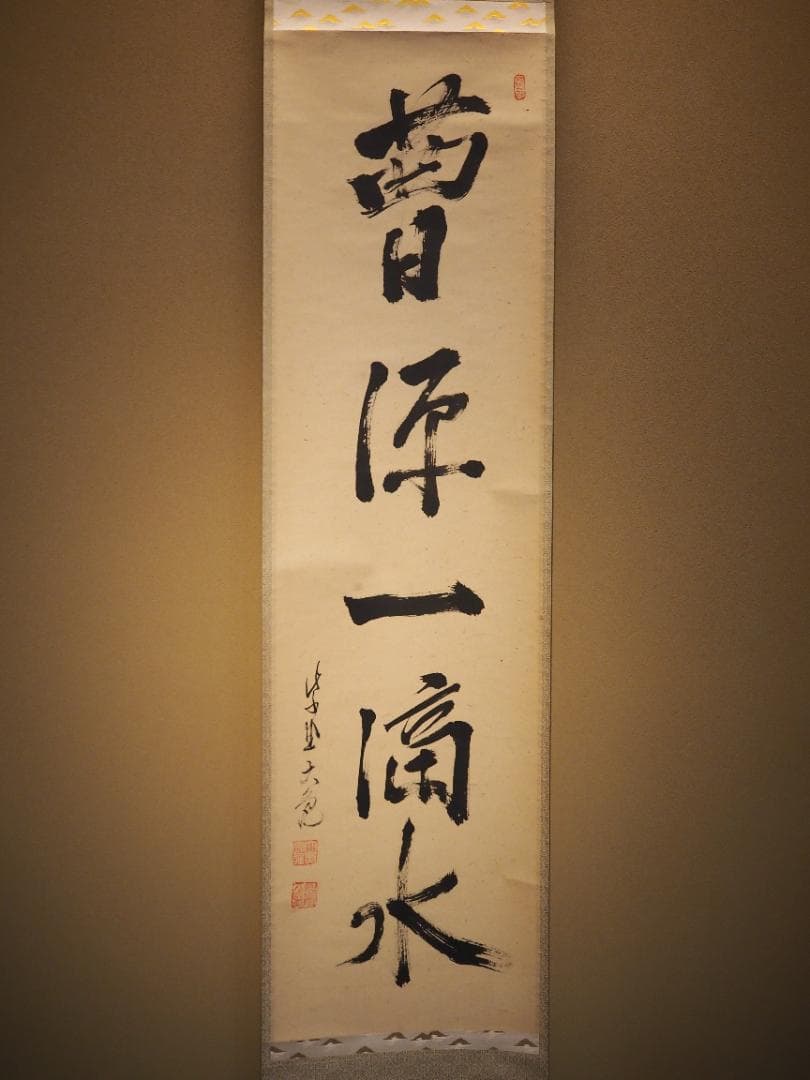 曹源一滴水